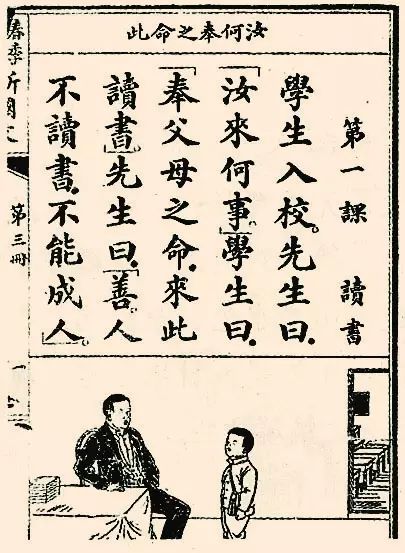 汝何奉之命此
第一課　讀書
學生入校。先生曰.
「汝來何事。」學生曰.
「奉父母之命.來此
讀書。」先生曰.「善。人
不讀書.不能成人。」
第三冊
一